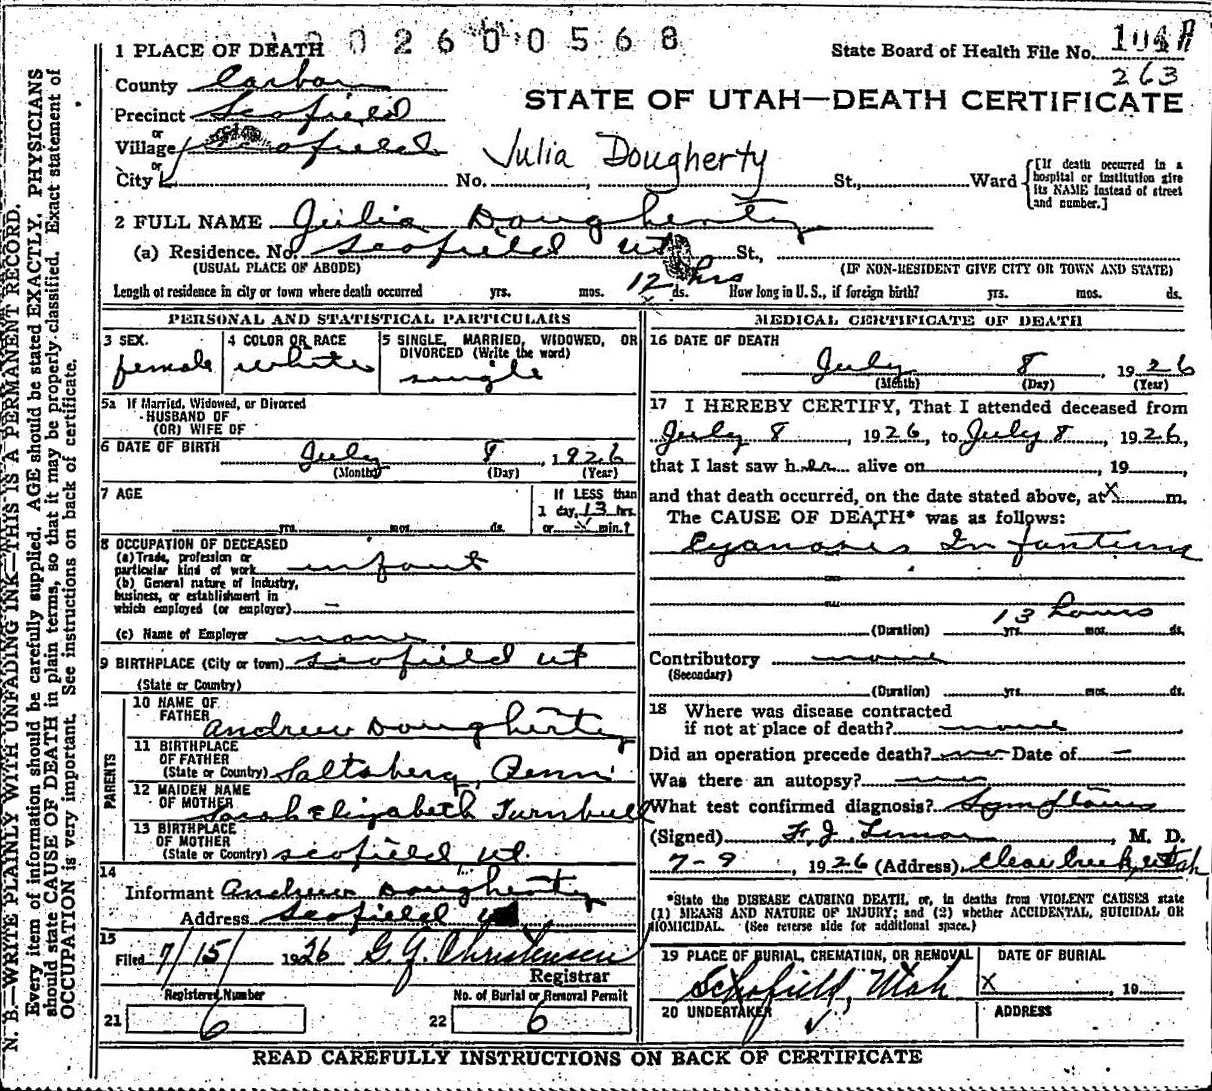 0 0 2 6 0 0 5 6 8
1 PLACE OF DEATH
State Board of Health File No. 104
263
County Carbon
STATE OF UTAH—DEATH CERTIFICATE
Precinct Scofield
or
Village Scofield
or
City No. , St., Ward
Julia Dougherty
[If death occurred in a
hospital or institution give
its NAME instead of street
and number.]
2 FULL NAME Julia Dougherty
(a) Residence. No. Scofield Ut St.,
(USUAL PLACE OF ABODE)
(IF NON-RESIDENT GIVE CITY OR TOWN AND STATE)
Length of residence in city or town where death occurred yrs. mos. 12 hrs ds. How long in U. S., if foreign birth? yrs. mos. ds.
PERSONAL AND STATISTICAL PARTICULARS
3 SEX.
female
4 COLOR OR RACE
white
5 SINGLE, MARRIED, WIDOWED, OR
DIVORCED (Write the word)
single
5a If Married, Widowed, or Divorced
HUSBAND OF
(OR) WIFE OF
6 DATE OF BIRTH July 8, 1926
(Month) (Day) (Year)
7 AGE
yrs. mos. ds.
If LESS than
1 day, 13 hrs.
or x min.?
8 OCCUPATION OF DECEASED
(a) Trade, profession or
particular kind of work infant
(b) General nature of Industry,
business, or establishment in
which employed (or employer) —
(c) Name of Employer none
9 BIRTHPLACE (City or town) Scofield Ut
(State or Country)
PARENTS
10 NAME OF
FATHER Andrew Dougherty
11 BIRTHPLACE
OF FATHER
(State or Country) Saltsberg, Penn
12 MAIDEN NAME
OF MOTHER Sarah Elizabeth Turnbull
13 BIRTHPLACE
OF MOTHER
(State or Country) Scofield, Ut.
14
Informant Andrew Dougherty
Address Scofield Ut
15
Filed 7/15/ 1926 G. Y. Christensen
Registrar
Registered Number
21 6
No. of Burial or Removal Permit
22 6
MEDICAL CERTIFICATE OF DEATH
16 DATE OF DEATH
July 8 1926
(Month) (Day) (Year)
17 I HEREBY CERTIFY, That I attended deceased from
July 8, 1926, to July 8, 1926,
that I last saw her alive on , 19
and that death occurred, on the date stated above, at X m.
The CAUSE OF DEATH* was as follows:
Cyanosis Infantum
13 hours
(Duration) yrs. mos. ds.
Contributory none
(Secondary)
(Duration) yrs. mos. ds.
18 Where was disease contracted
if not at place of death? none
Did an operation precede death? no Date of —
Was there an autopsy? no
What test confirmed diagnosis? Symptoms
(Signed) F. J. , M. D.
7-9, 1926 (Address) Clear Creek, Utah
*State the DISEASE CAUSING DEATH, or, in deaths from VIOLENT CAUSES state
(1) MEANS AND NATURE OF INJURY; and (2) whether ACCIDENTAL, SUICIDAL OR
HOMICIDAL. (See reverse side for additional space.)
19 PLACE OF BURIAL, CREMATION, OR REMOVAL
Schofield, Utah
DATE OF BURIAL
X , 19
20 UNDERTAKER
ADDRESS
READ CAREFULLY INSTRUCTIONS ON BACK OF CERTIFICATE
N. B.—WRITE PLAINLY WITH UNFADING INK—THIS IS A PERMANENT RECORD.
Every item of information should be carefully supplied. AGE should be stated EXACTLY. PHYSICIANS
should state CAUSE OF DEATH in plain terms, so that it may be properly classified. Exact statement of
OCCUPATION is very important. See instructions on back of certificate.